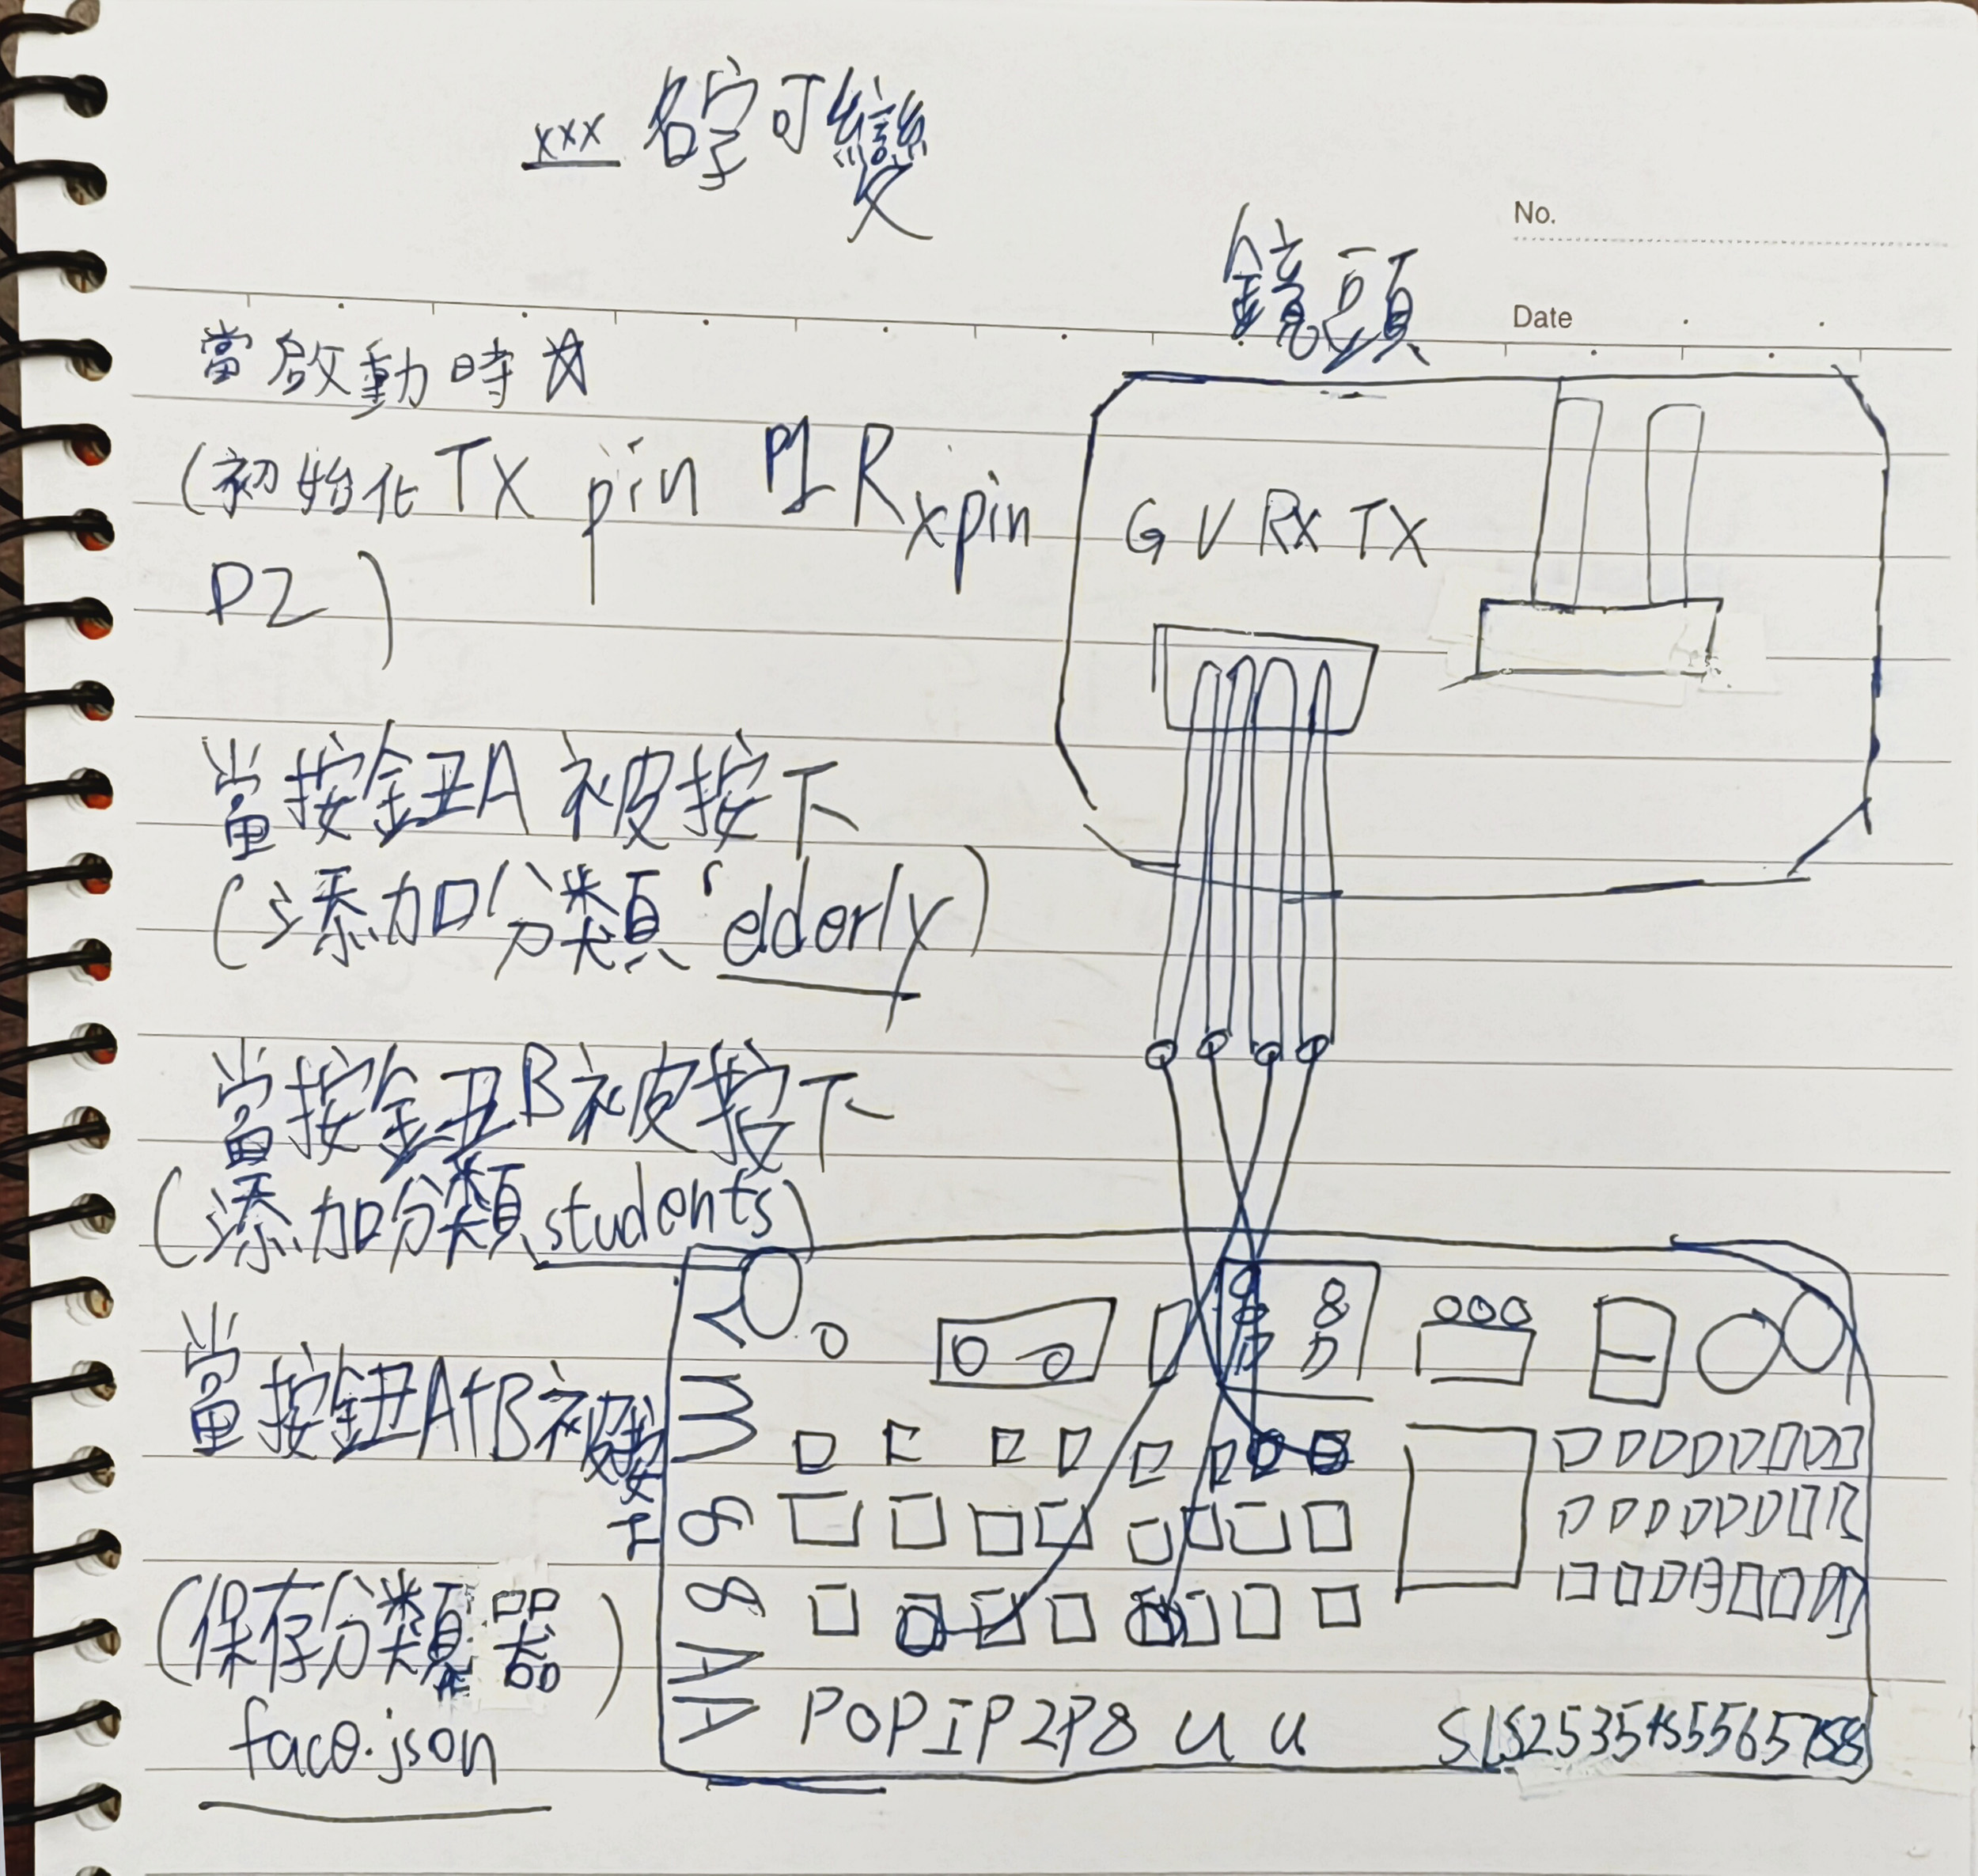 xxx 名字可變
No.
鏡頭
Date
當啟動時
(初始化 TX pin P1 Rxpin
P2)
G V RX TX
當按鈕A 被按下
(添加分類 「elderly)
當按鈕B被按下
(添加分類 students)
當按鈕A+B被按
下
(保存分類器)
face.json
P0P1P2P8 u u
S1S2S3S4S5S6S7S8